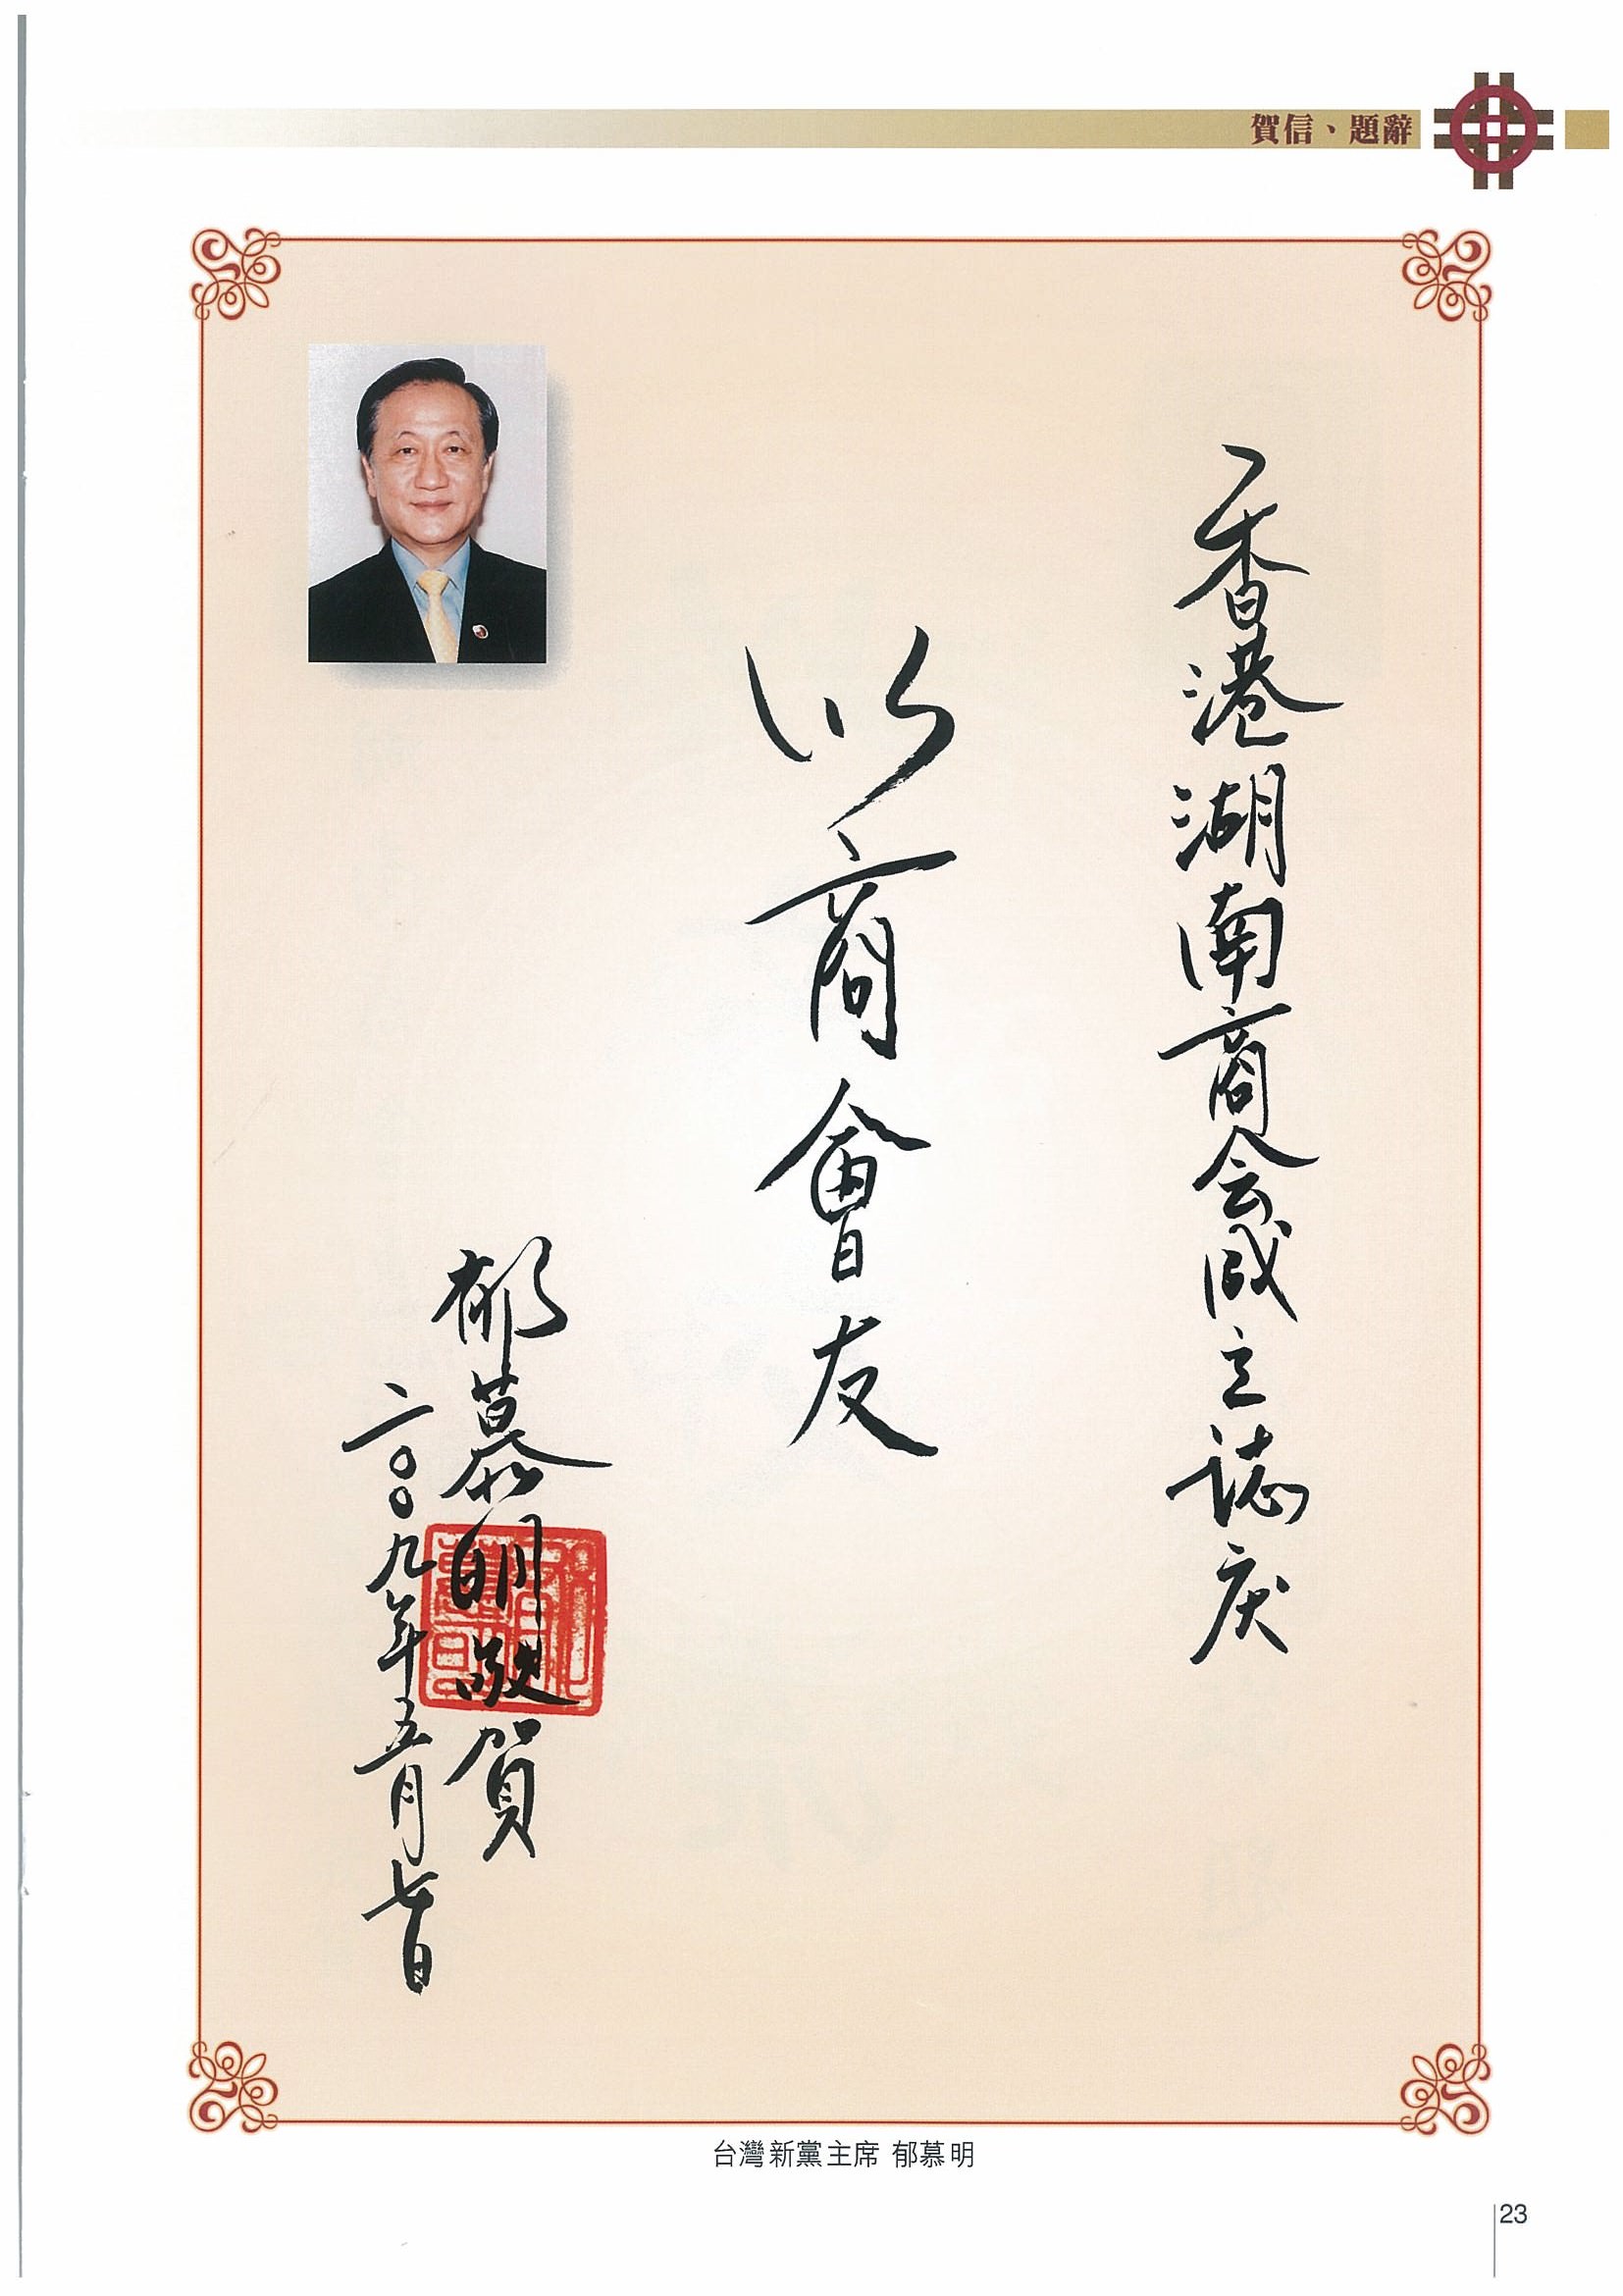 賀信、題辭
香港湖南商会成立誌庆
以商會友
郁慕明敬賀
二〇〇九年五月七日
台灣新黨主席 郁慕明
23